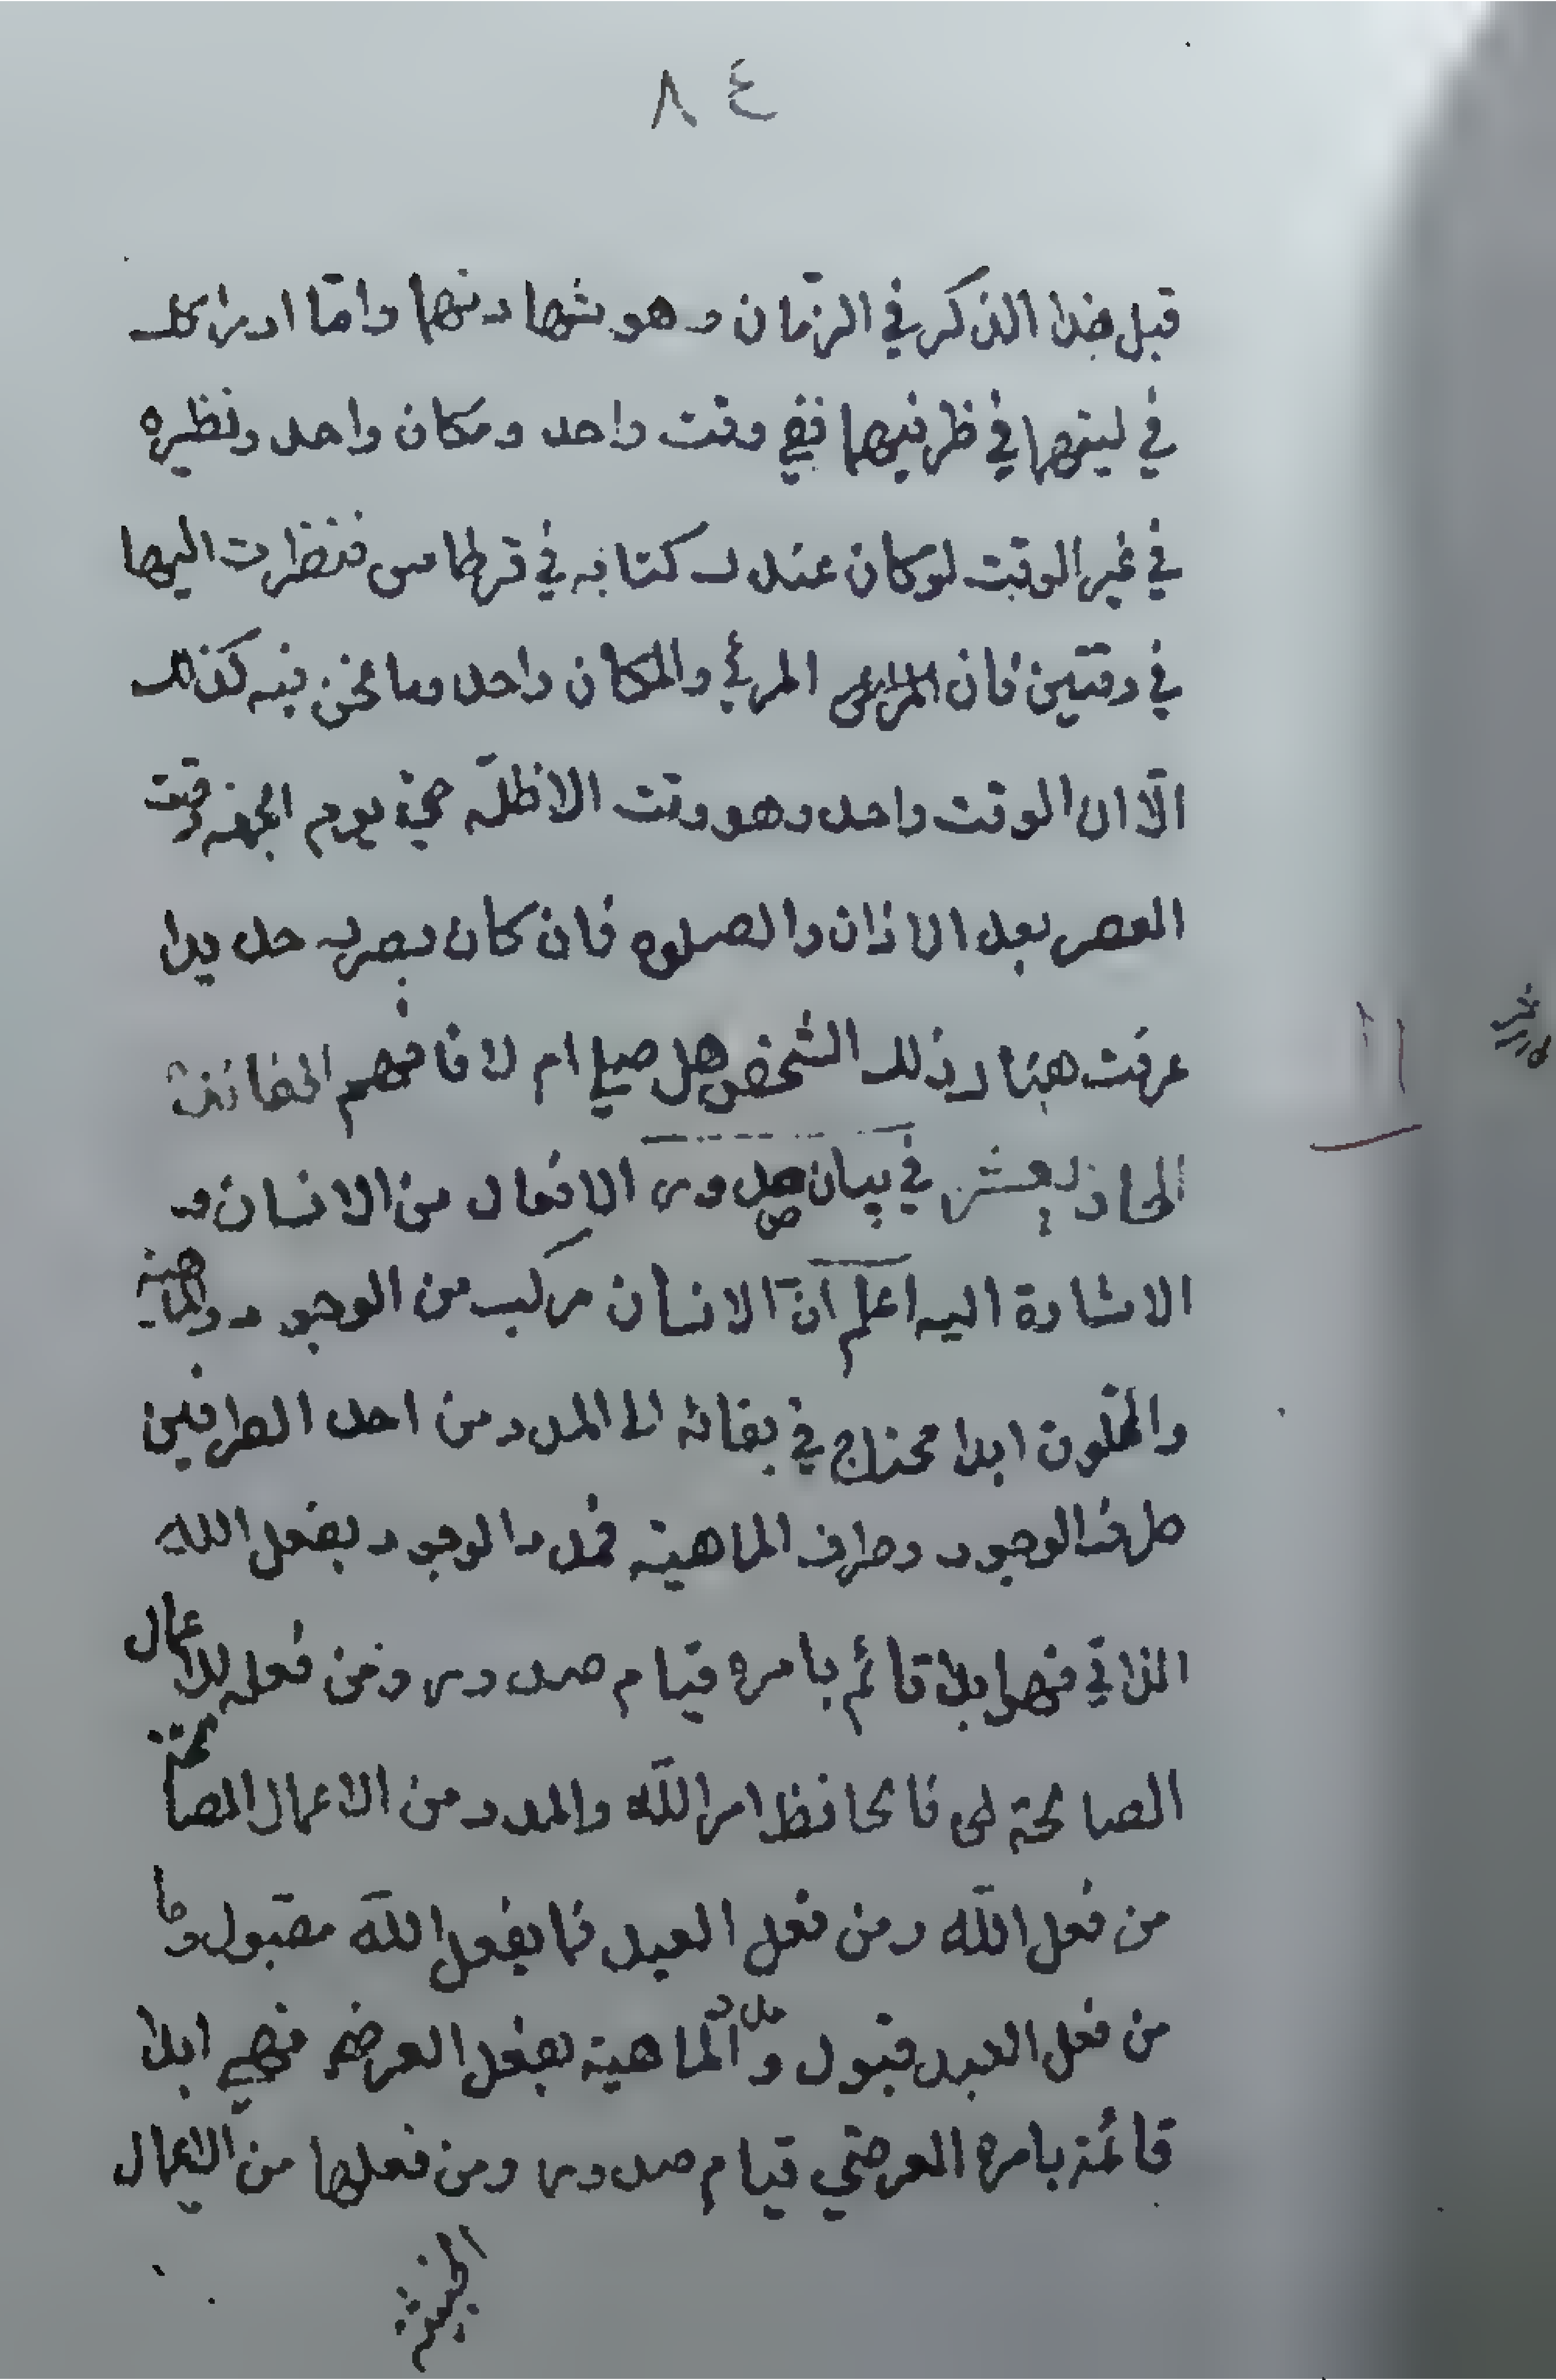 ٨٤
قبل هذا الذكر في الزمان وهو شهادتها وامّا ادراكك
في ليتهما في ظرفيهما ففي وقت واحد ومكان واحد ونظيره
في غير الوقت لو كان عندك كتابه في قرطاس فنظرت اليها
في وقتين فان المرئي والمكان واحد وما نحن فيه كذلك
الّا ان الوقت واحد وهو وقت الاظلّه يوم الجمعه وقت
العصر بعد الاذان والصلوه فان كان بصرك حديدا
عرفت هناك ذلك الشخص هل صلى ام لا فافهم الفائدة
الحاديعشر في بيان صدور الافعال من الانسان و
الاشارة اليه اعلم انّ الانسان مركب من الوجود والماهية
والمخلوق ابدا محتاج في بقائه الى المدد من احد الطرفين
طرف الوجود وطرف الماهية فمدد الوجود بفعل الله
الذاتي فهو ابدا قائم بامره قيام صدور ومن فعله بالاعمال
الصالحة فالحافظ امر اللّه والمدد من الاعمال الصالحة
من فعل اللّه ومن فعل العبد فما بفعل اللّه مقبول وما
من فعل العبد قبول ومدد الماهية بفعل العرضي فهي ابدا
قائمة بامره العرضي قيام صدور ومن فعلها من الاعمال
الخبيثة
١١